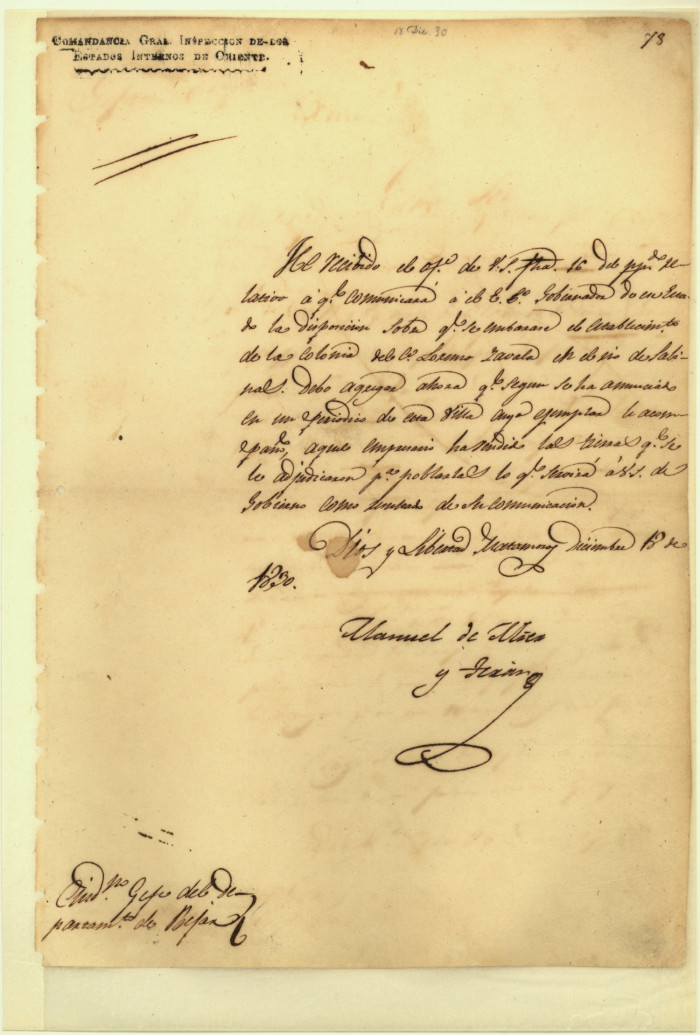 18 Dic. 30
73
COMANDANCIA GRAL INSPECCION DE LOS
ESTADOS INTERNOS DE ORIENTE.
He recibido el ofº. de V.S. fha. 16 del ppdº. re-
lativo á qº. comunicará á el E. Sº. Gobernador de ese Esta-
do la disposicion sobre qº. se embarase el establecimto.
de la colonia del Cº. Lorenzo Zavala en el rio de Sabi-
nas. Debo agregar ahora qº. segun se ha anunciado
en un periodico de esta Villa cuyo ejemplar le acom-
paño, aquel empresario ha vendido las tierras qº. se
le adjudicaron pª. poblarlas lo qº. servirá á V.S. de
Gobierno como resultado de su comunicacion.
Dios y Libertad Matamoros Diciembre 18 de
1830.
Manuel de Mier
y Teran
Ciudno. Gefe del De-
partamto. de Bejar